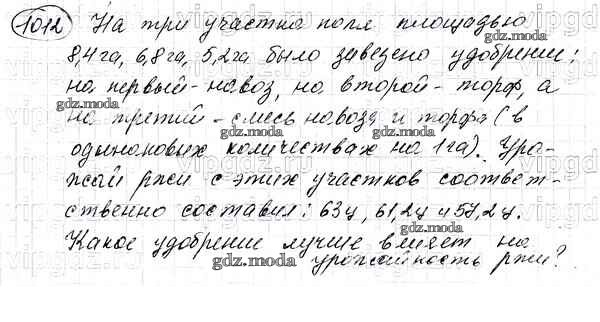 1012 На три участка поля площадью
8,4 га, 6,8 га, 5,2 га было завезено удобрение:
на первый - навоз, на второй - торф, а
на третий - смесь навоза и торфа (в
одинаковых количествах на 1 га). Уро-
жай ржи с этих участков соответ-
ственно составил: 63ц, 61,2ц и 57,2ц.
Какое удобрение лучше влияет на
урожайность ржи?
gdz.moda
gdz.moda
gdz.moda
gdz.moda
gdz.moda
gdz.moda
gdz.moda
gdz.moda